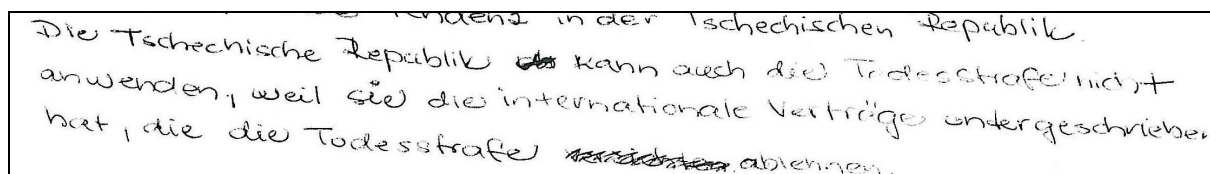 Tendenz in der Tschechischen Republik.
Die Tschechische Republik kann auch die Todesstrafe nicht
anwenden, weil sie die internationale Verträge undergeschrieben
hat, die die Todesstrafe ablehnen.